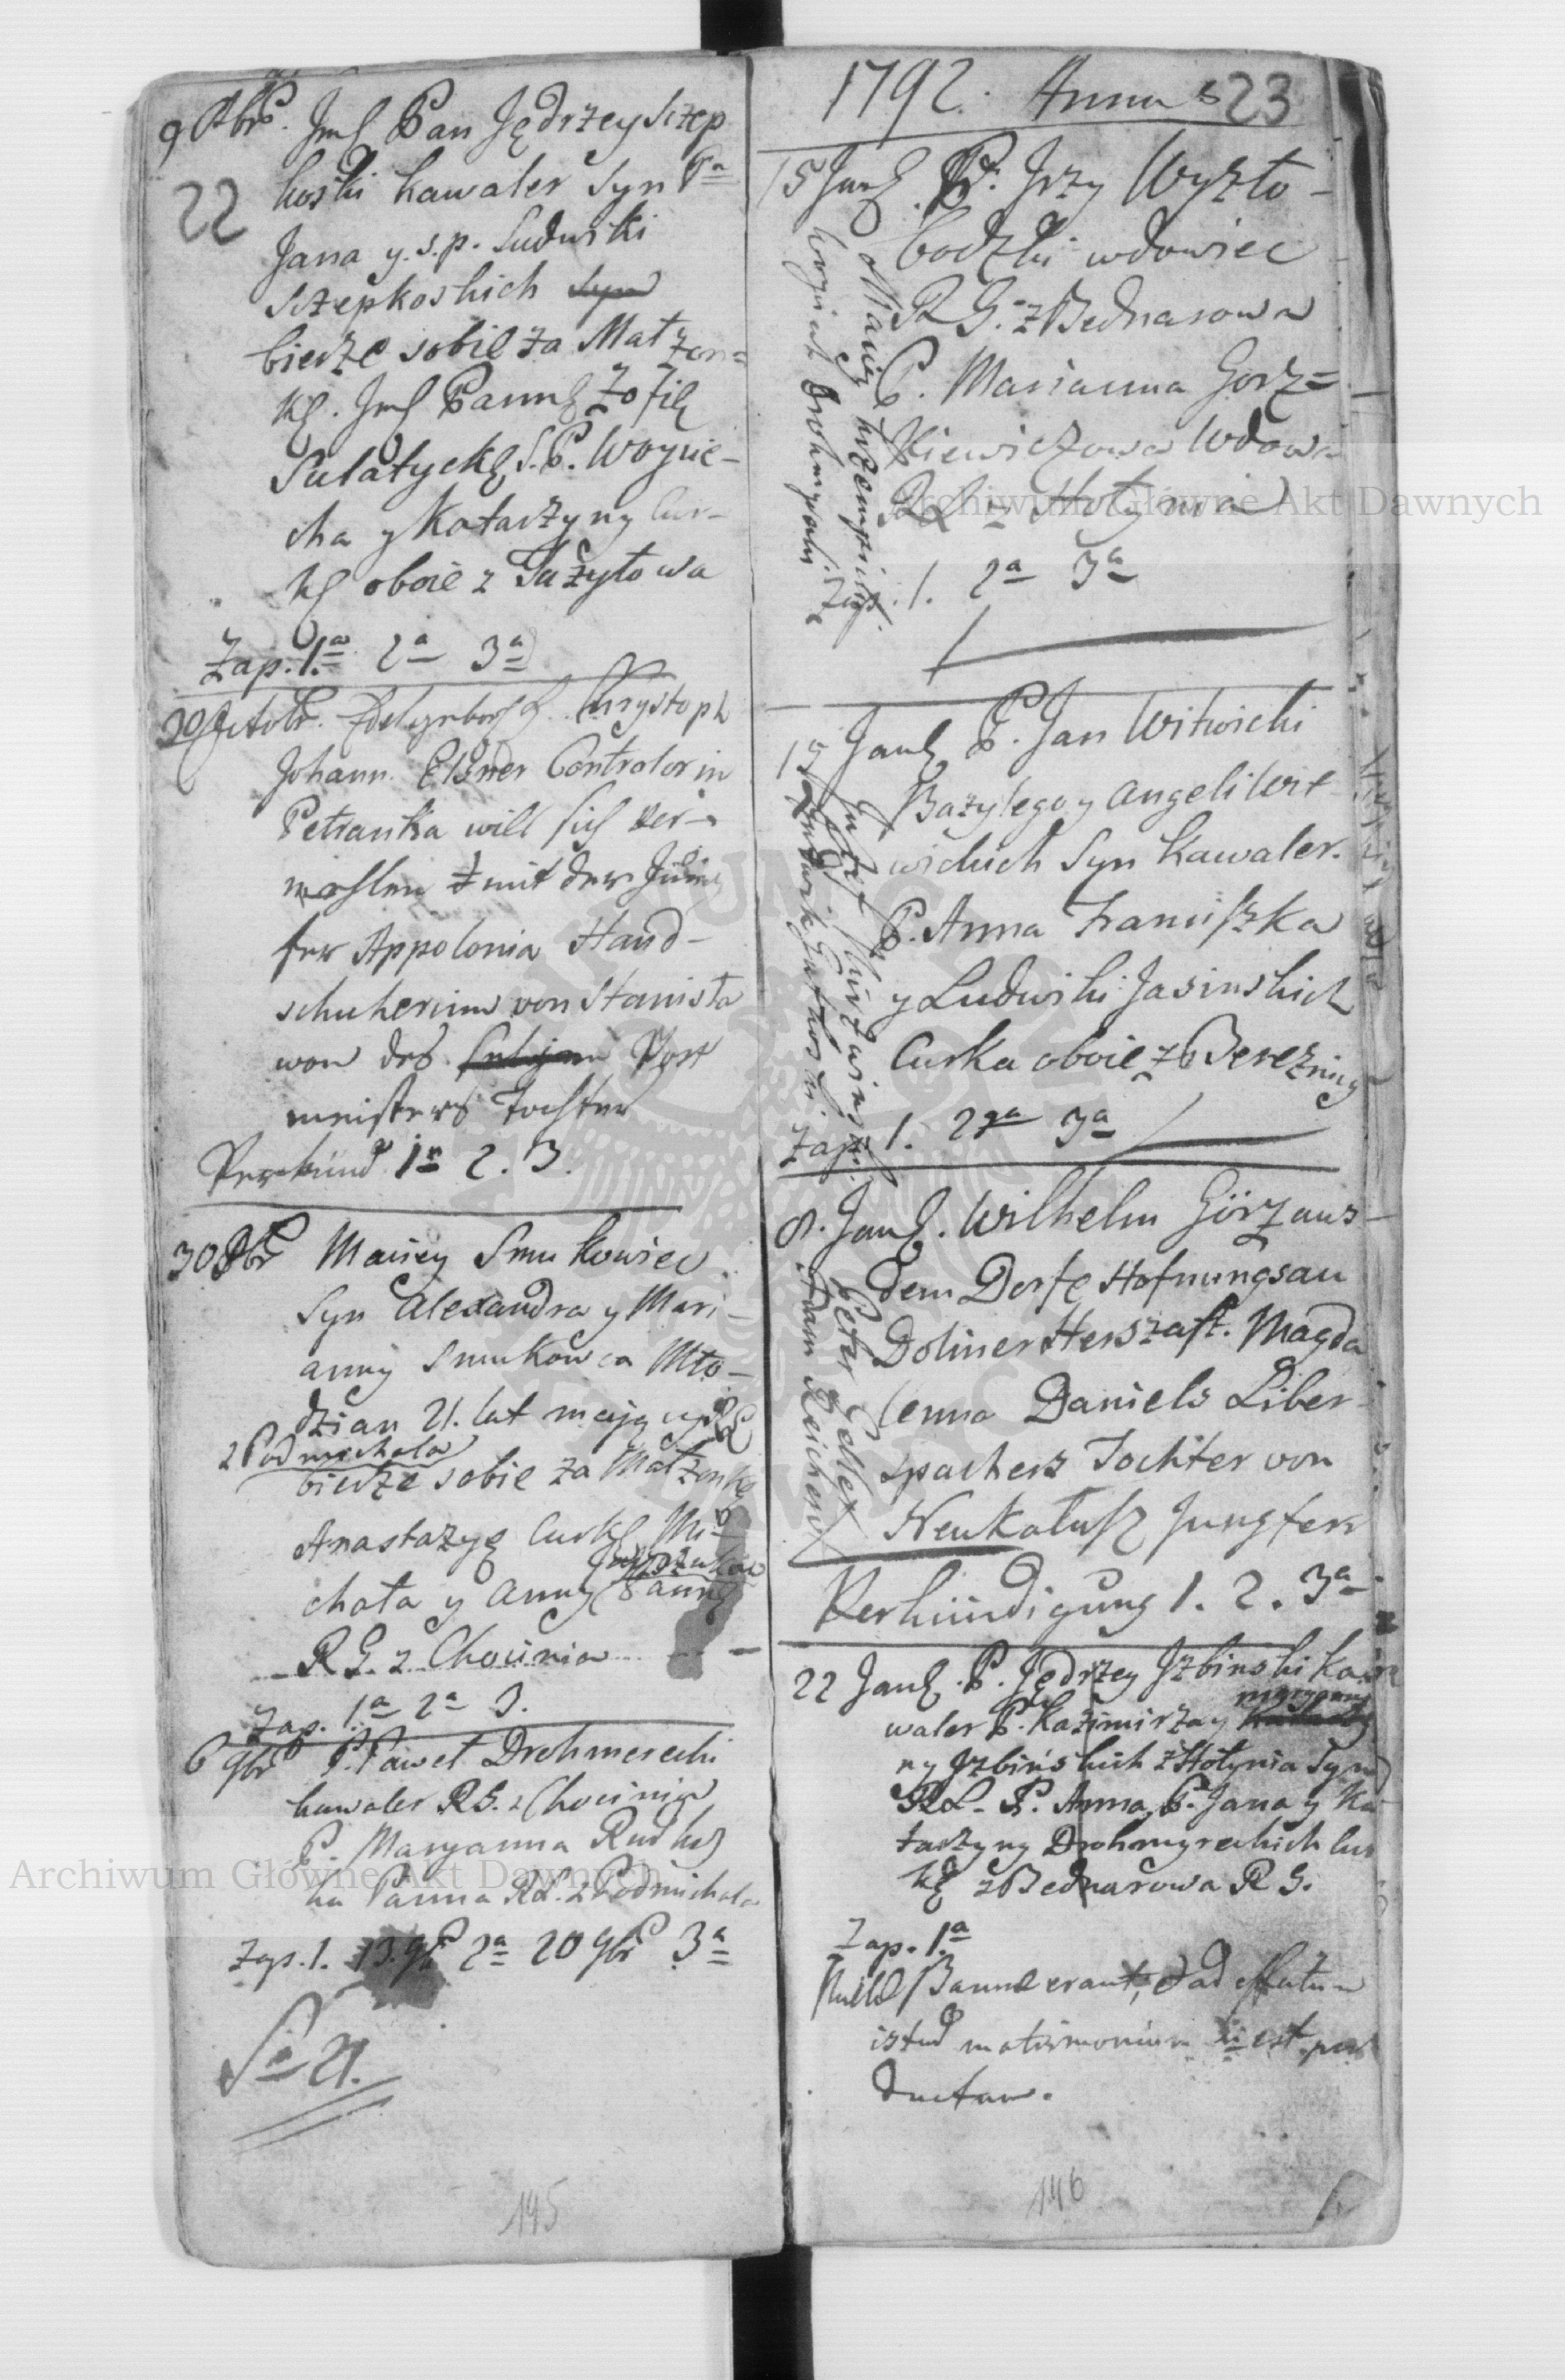 9 8bris. Jmć Pan Jędrzey Szep
22
koski kawaler Syn Pa
Jana y s.p. Ludwiki
Szepkoskich Syn
bierze sobie za Małżon=
kę. Jmć Pannę Zofię
Sulatyckę S.P. Woycie-
cha y Katarzyny Cur-
kę oboie z Tużyłowa
Zap. 1a 2a 3a
30 Octobr. Krystoph
Johann Elsner Controlor in
Petranka will sich ver-
mahlen mit der
fer Appolonia Hand-
schucherinn von Stanisła
wow des Post
meisters Tochter
Verkünd 1n 2. 3.
30 8br Maciey Smukowiec
Syn Alexandra y Mari-
anny Smukowca Mło-
dzian 21. lat mający
z Podmichala
bierze sobie za Małżonkę
Anastazyę Curkę Mi-
chała y Anny Pannę
R G. z Chocinia
Zap. 1a 2a 3.
6 9br P. Paweł Drohmerecki
kawaler R G. z Chocinia
P. Maryanna Rud
ka Panna RL. z Podmichala
Zap. 1. 13. 9br 2a 20 9br 3a
Sa 21.
145
1792. Annus 23
15 Janu. P. Jrzy Wyszło-
bodzki wdowiec
R G. z Bednarowa
P. Marianna Gorz=
kiewiczowa Wdowa
RL z Hołynia
Zap. 1. 2a 3a
15 Janu. P. Jan Witwicki
Bazylego y Angeli Wit
wickich Syn Kawaler.
P. Anna Franciszka
y Ludwiki Jasinskich
Curka oboie z Berezniny
Zap. 1. 2ga 3a
8. Janu. Wilhelm Görz aus
dem Dorfe Hofnungsau
Doliner Herszaft. Magda
lenna Daniels Liber-
spachers Tochter von
Neukałusz Jungfer
Peter Edler
Adam Reicher
Verkündigung 1. 2. 3a
22 Janu. P. Jędrzey Jzbinski ka
waler P. Kazimirza y
maryan
ny Jzbińskich z Hołynia Syn
RL. P. Anna P. Jana y Ka
tarzyny Drohmyreckich Cur
kę z Bednarowa R G.
Zap. 1.a
Nullae Bannae erant, et ad effectum
istud matrimonium ñ est per
ductum.
146
Archiwum Główne Akt Dawnych
Archiwum Główne Akt Dawnych